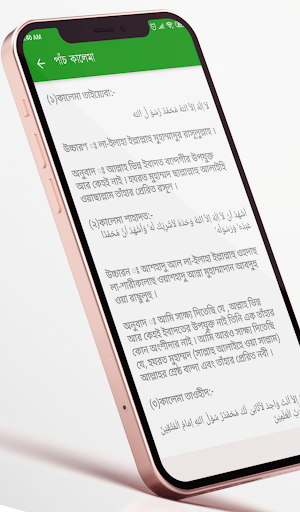 :40 AM
পাঁচ কালেমা
(১)কালেমা তাইয়্যেবা:-
لا إله إلا الله محمد رسول الله
উচ্চারণ ঃ লা-ইলাহা ইল্লাল্লাহু মুহাম্মাদুর রাসূলুল্লাহ।
অনুবাদ ঃ আল্লাহ ভিন্ন ইবাদত বন্দেগীর উপযুক্ত
আর কেহই নাই। হযরত মুহাম্মদ ছাল্লাল্লাহু আলাইহি
ওয়াছাল্লাম তাঁহার প্রেরিত রসূল।
(২)কালেমা শাহাদত:-
أشهد أن لا إله إلا الله وحده لا شريك له وأشهد أن محمدا
عبده ورسوله
উচ্চারন ঃ আশহাদু আল লা-ইলাহা ইল্লাল্লাহু ওহদাহু
লা-শারীকালাহু ওয়াশহাদু আন্না মুহাম্মাদান আবদুহু
ওয়া রাছুলুহু।
অনুবাদ ঃ আমি সাক্ষ্য দিতেছি যে, আল্লাহ ভিন্ন
আর কেহই ইবাদতের উপযুক্ত নাই তিনি এক তাঁহার
কোন অংশীদার নাই। আমি আরও সাক্ষ্য দিতেছি
যে, হযরত মুহাম্মদ (সাল্লাহু আলাইহে ওয়া সাল্লাম)
আল্লাহর শ্রেষ্ঠ বান্দা এবং তাঁহার প্রেরিত নবী।
(৩)কালেমা তাওহীদ:-
إلا أنت واحد لا ثاني لك محمد رسول الله إمام المتقين